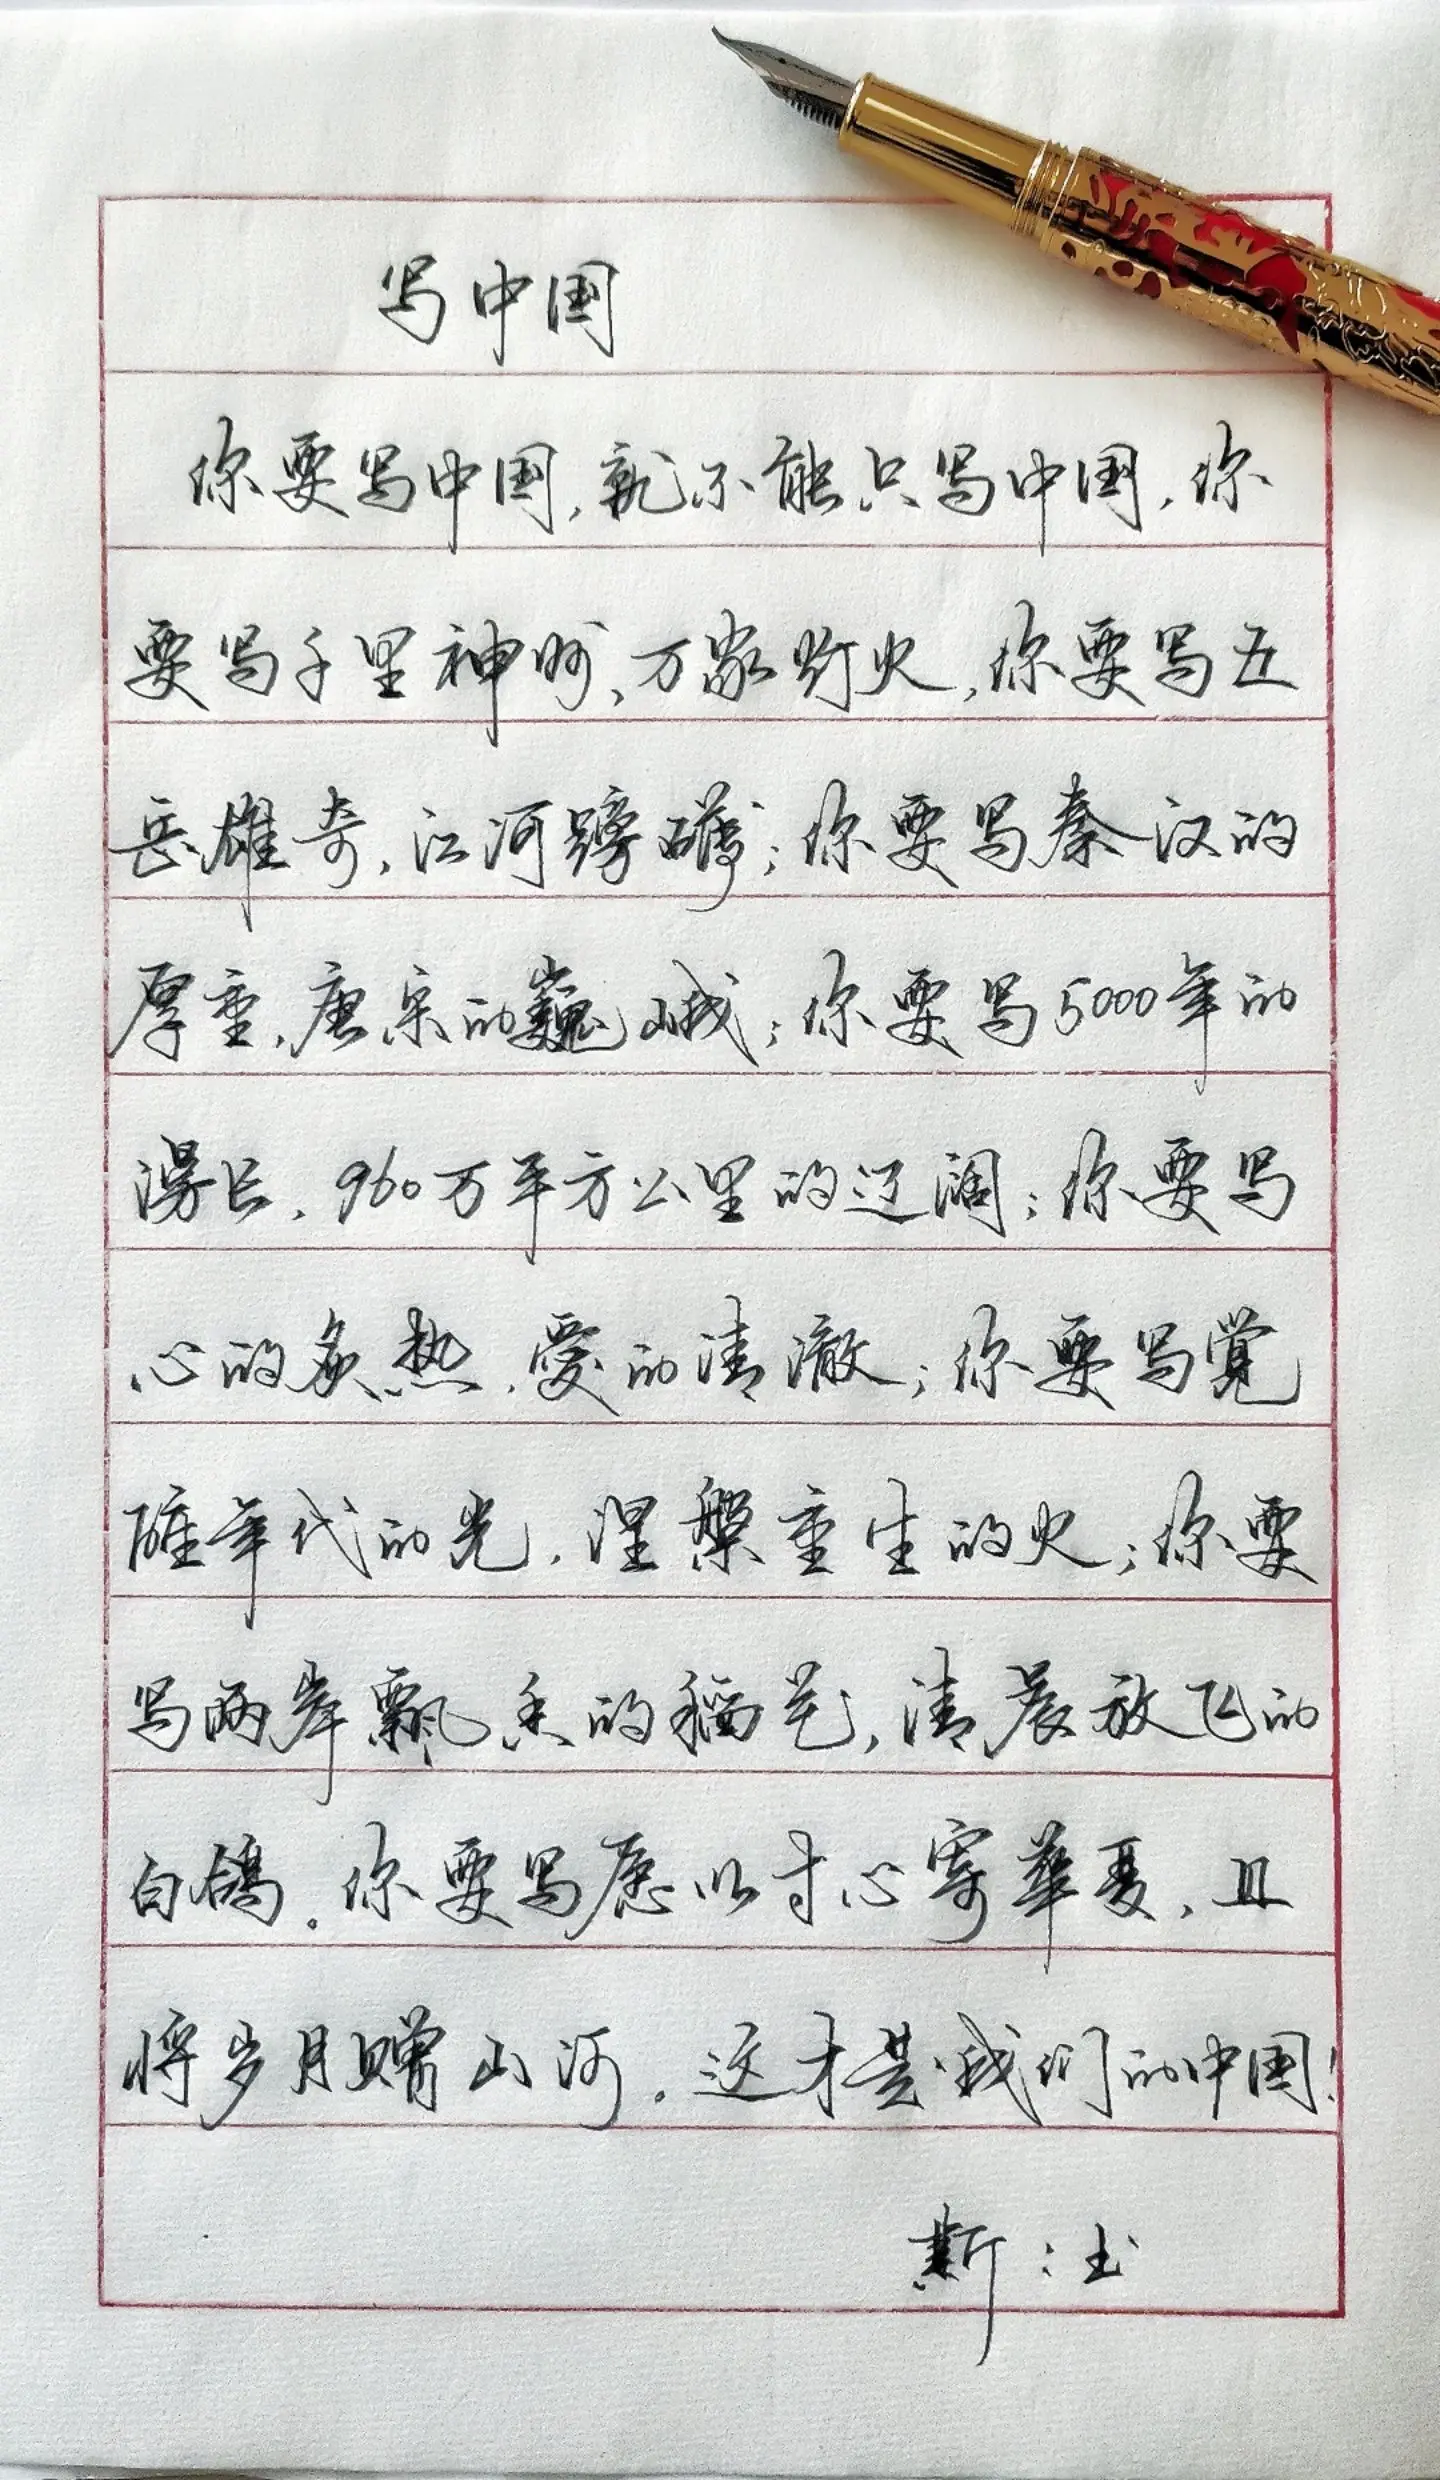 写中国
你要写中国,就不能只写中国,你
要写千里神州,万家灯火,你要写五
岳雄奇,江河磅礴;你要写秦汉的
厚重,唐宋的巍峨;你要写5000年的
漫长,960万平方公里的辽阔;你要写
心的炙热,爱的清澈;你要写觉
醒年代的光,涅槃重生的火;你要
写两岸飘香的稻花,清晨放飞的
白鸽。你要写愿以寸心寄华夏,且
将岁月赠山河。这才是我们的中国!
斯:玉